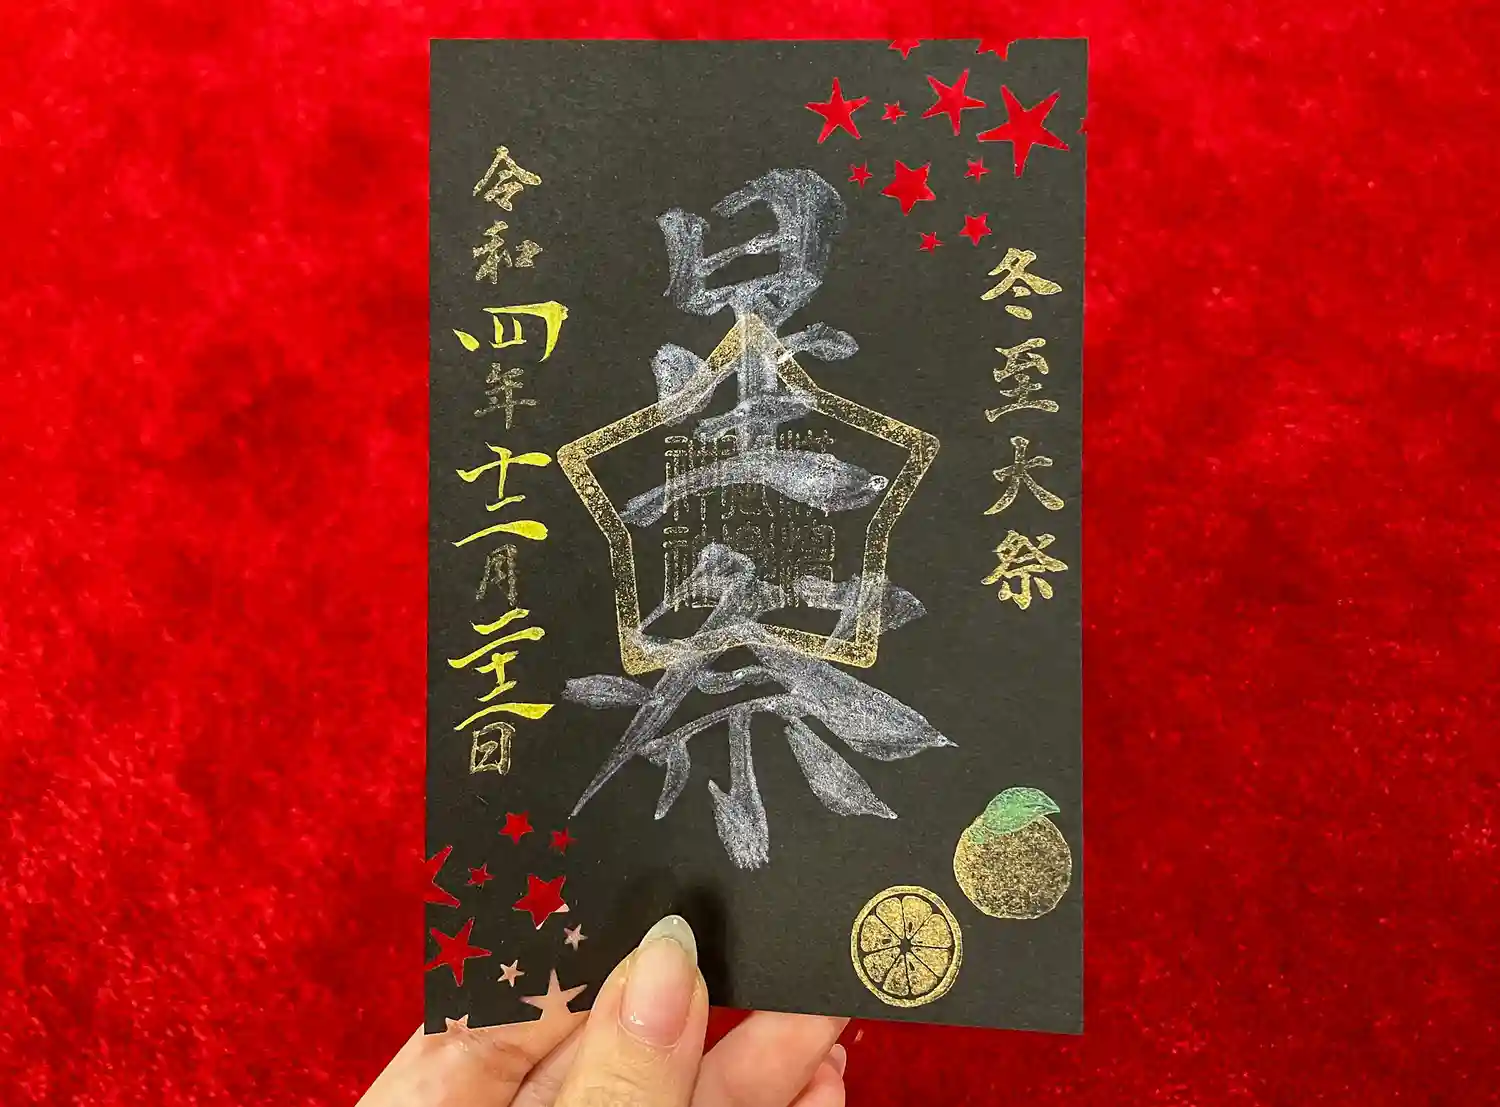 冬至大祭
星祭
令和四年十二月二十二日